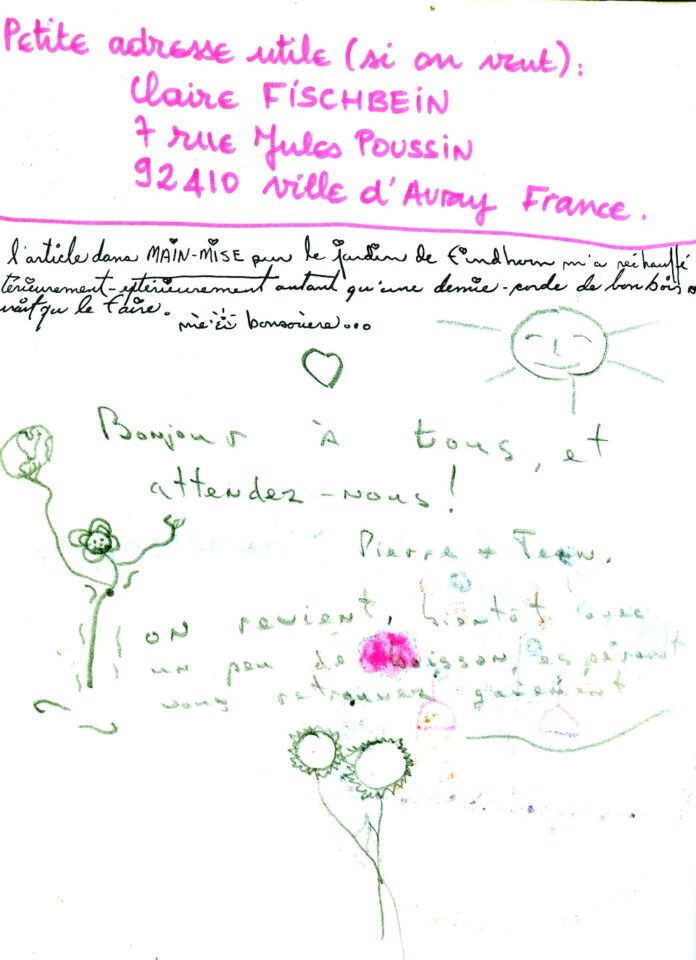 Petite adresse utile (si on veut):
Claire FISCHBEIN
7 rue Jules POUSSIN
92410 ville d'Avray France.
l'article dans MAIN-MISE sur le jardin de Findhorn m'a réchauffé
térieurement-extérieurement autant qu'une demie-corde de bon bois
urait pu le faire.
bonsoiere...
Bonjour à tous, et
attendez-nous!
Pierre +
on revient, bientôt avec
un peu de boisson, espérant
vous retrouver gaiement